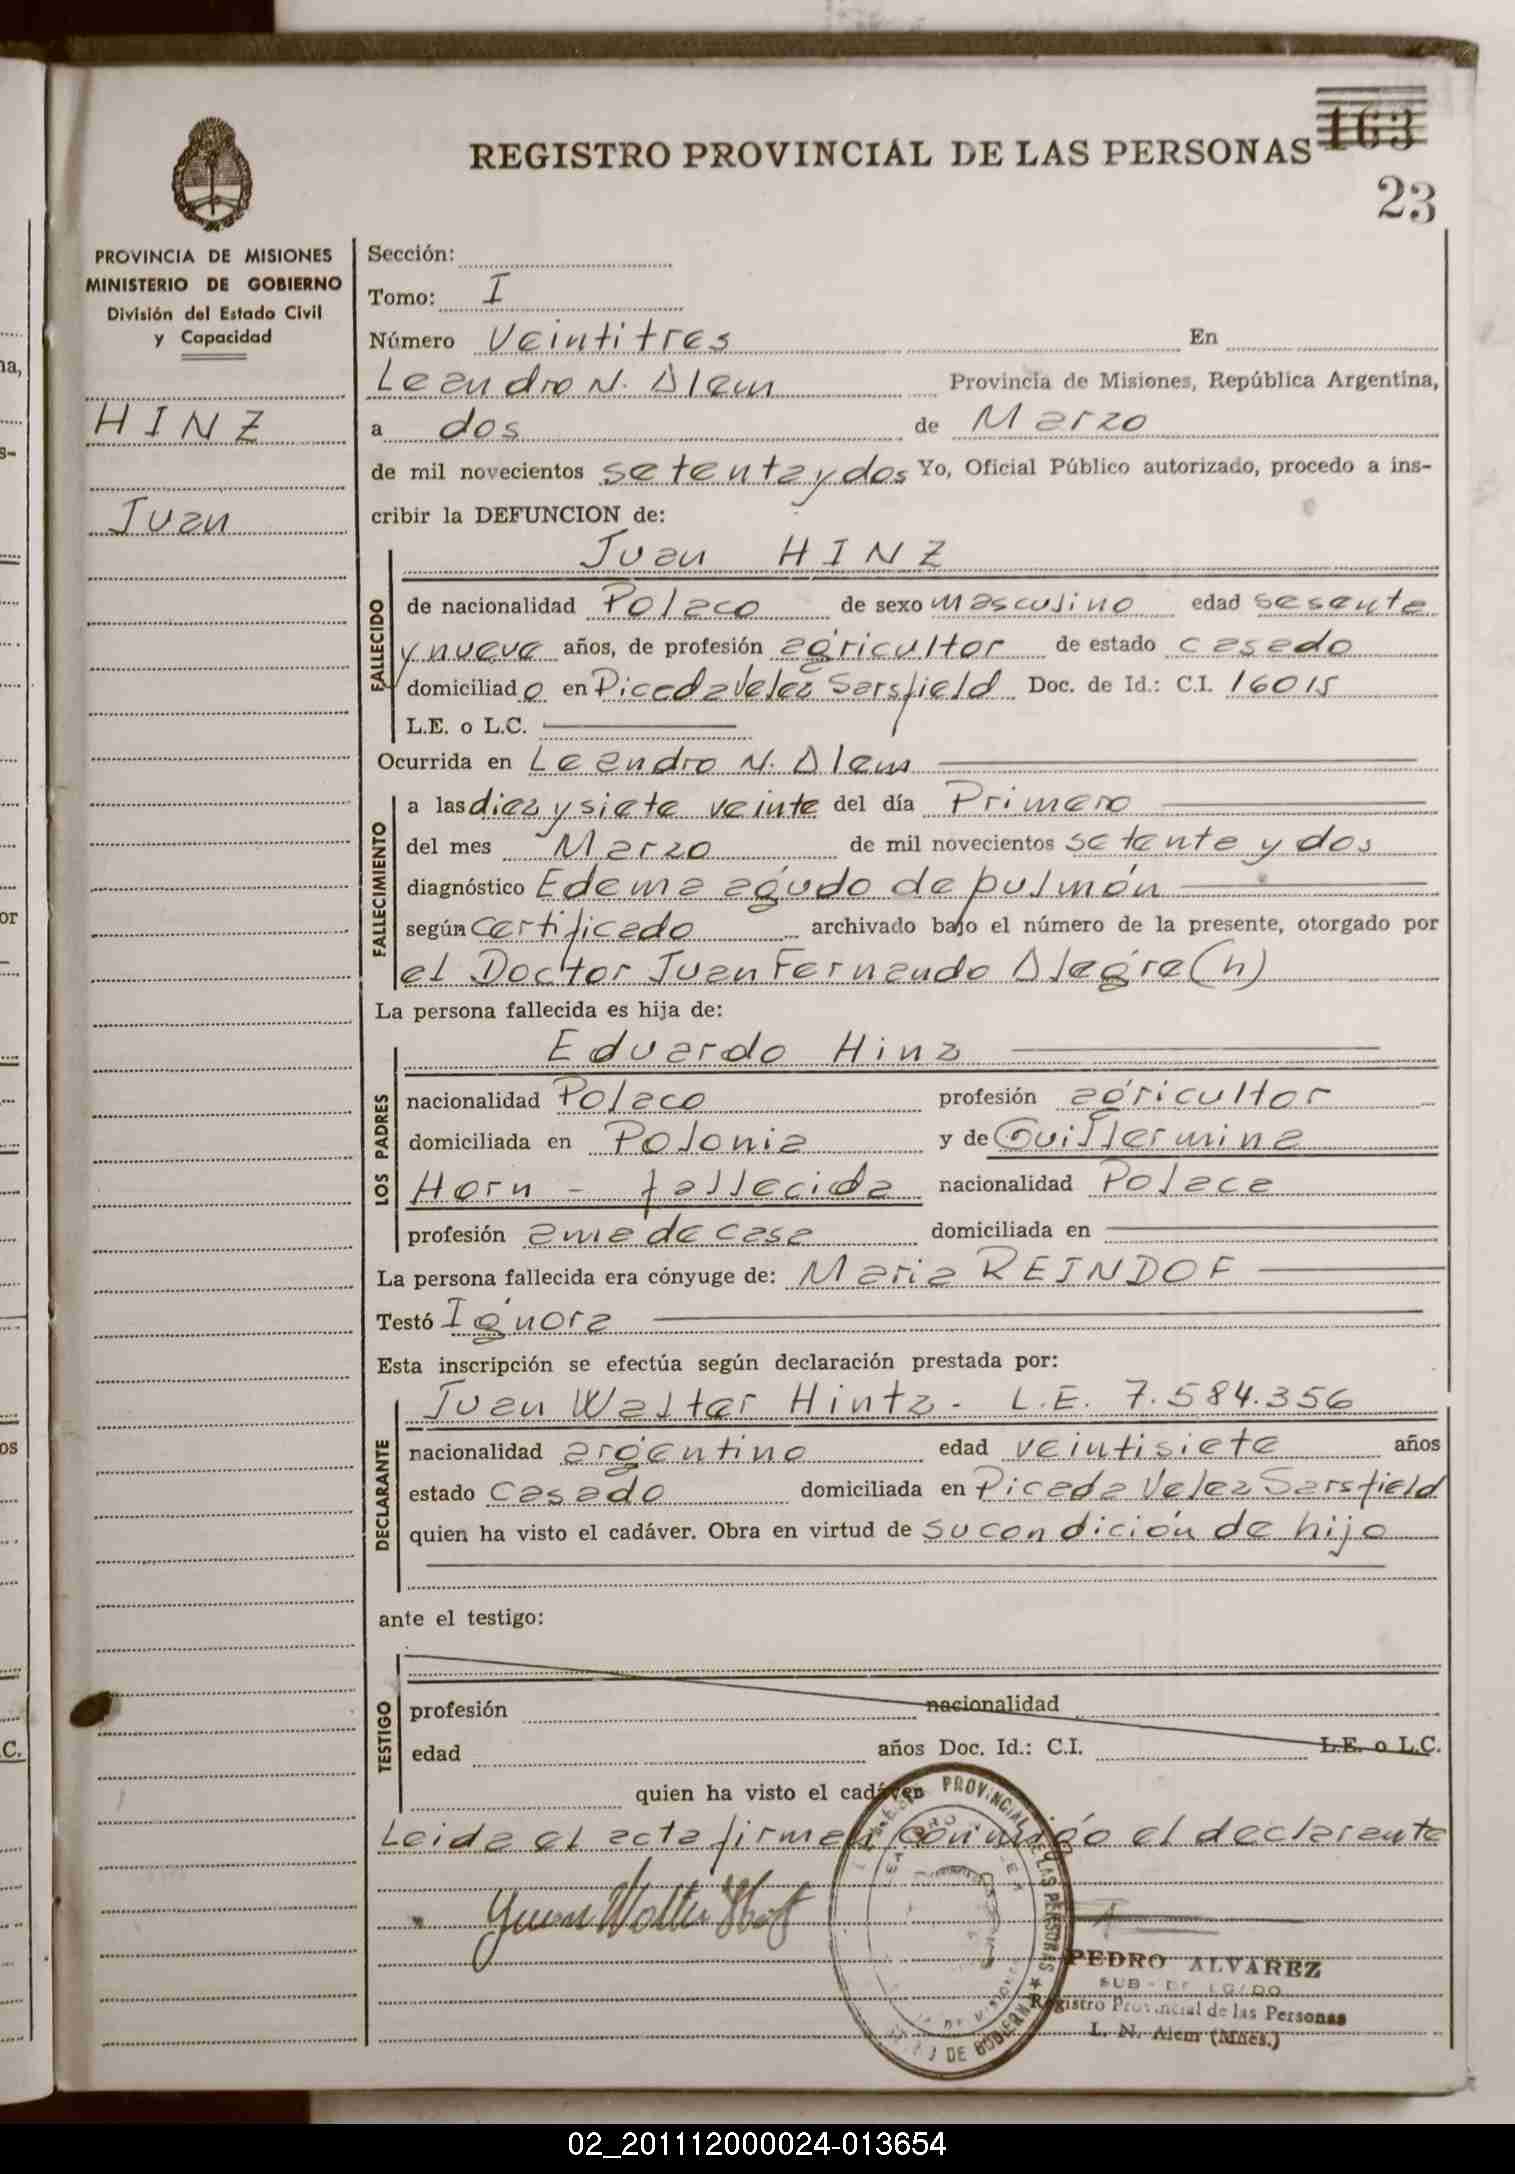 REGISTRO PROVINCIAL DE LAS PERSONAS
163
23
PROVINCIA DE MISIONES
MINISTERIO DE GOBIERNO
División del Estado Civil
y Capacidad
HINZ
Juan
Sección:
Tomo: I
Número Veintitres En
Leandro N. Alem Provincia de Misiones, República Argentina,
a dos de Marzo
de mil novecientos setenta y dos Yo, Oficial Público autorizado, procedo a ins-
cribir la DEFUNCION de:
FALLECIDO
Juan HINZ
de nacionalidad Polaco de sexo masculino edad sesenta
y nueve años, de profesión agricultor de estado casado
domiciliado en Picada Velez Sarsfield Doc. de Id.: C.I. 16015
L.E. o L.C.
Ocurrida en Leandro N. Alem
FALLECIMIENTO
a las diez y siete veinte del día Primero
del mes Marzo de mil novecientos setenta y dos
diagnóstico Edema agudo de pulmón
según certificado archivado bajo el número de la presente, otorgado por
el Doctor Juan Fernando Alegre (h)
La persona fallecida es hija de:
LOS PADRES
Eduardo Hinz
nacionalidad Polaco profesión agricultor
domiciliada en Polonia y de Guillermina
Horn - fallecida nacionalidad Polaca
profesión ama de casa domiciliada en
La persona fallecida era cónyuge de: Maria REINDOF
Testó Ignora
Esta inscripción se efectúa según declaración prestada por:
DECLARANTE
Juan Walter Hintz - L.E. 7.584.356
nacionalidad argentino edad veintisiete años
estado casado domiciliada en Picada Velez Sarsfield
quien ha visto el cadáver. Obra en virtud de su condición de hijo
ante el testigo:
TESTIGO
profesión nacionalidad
edad años Doc. Id.: C.I. L.E. o L.C.
quien ha visto el cadáver
Leida el acta firman conmigo el declarante
Juan Walter
PROVINCIAL DE LAS PERSONAS
DE GOBIERNO
PEDRO ALVAREZ
SUB-DELEGADO
Registro Provincial de las Personas
L. N. Alem (Mnes.)
02_201112000024-013654